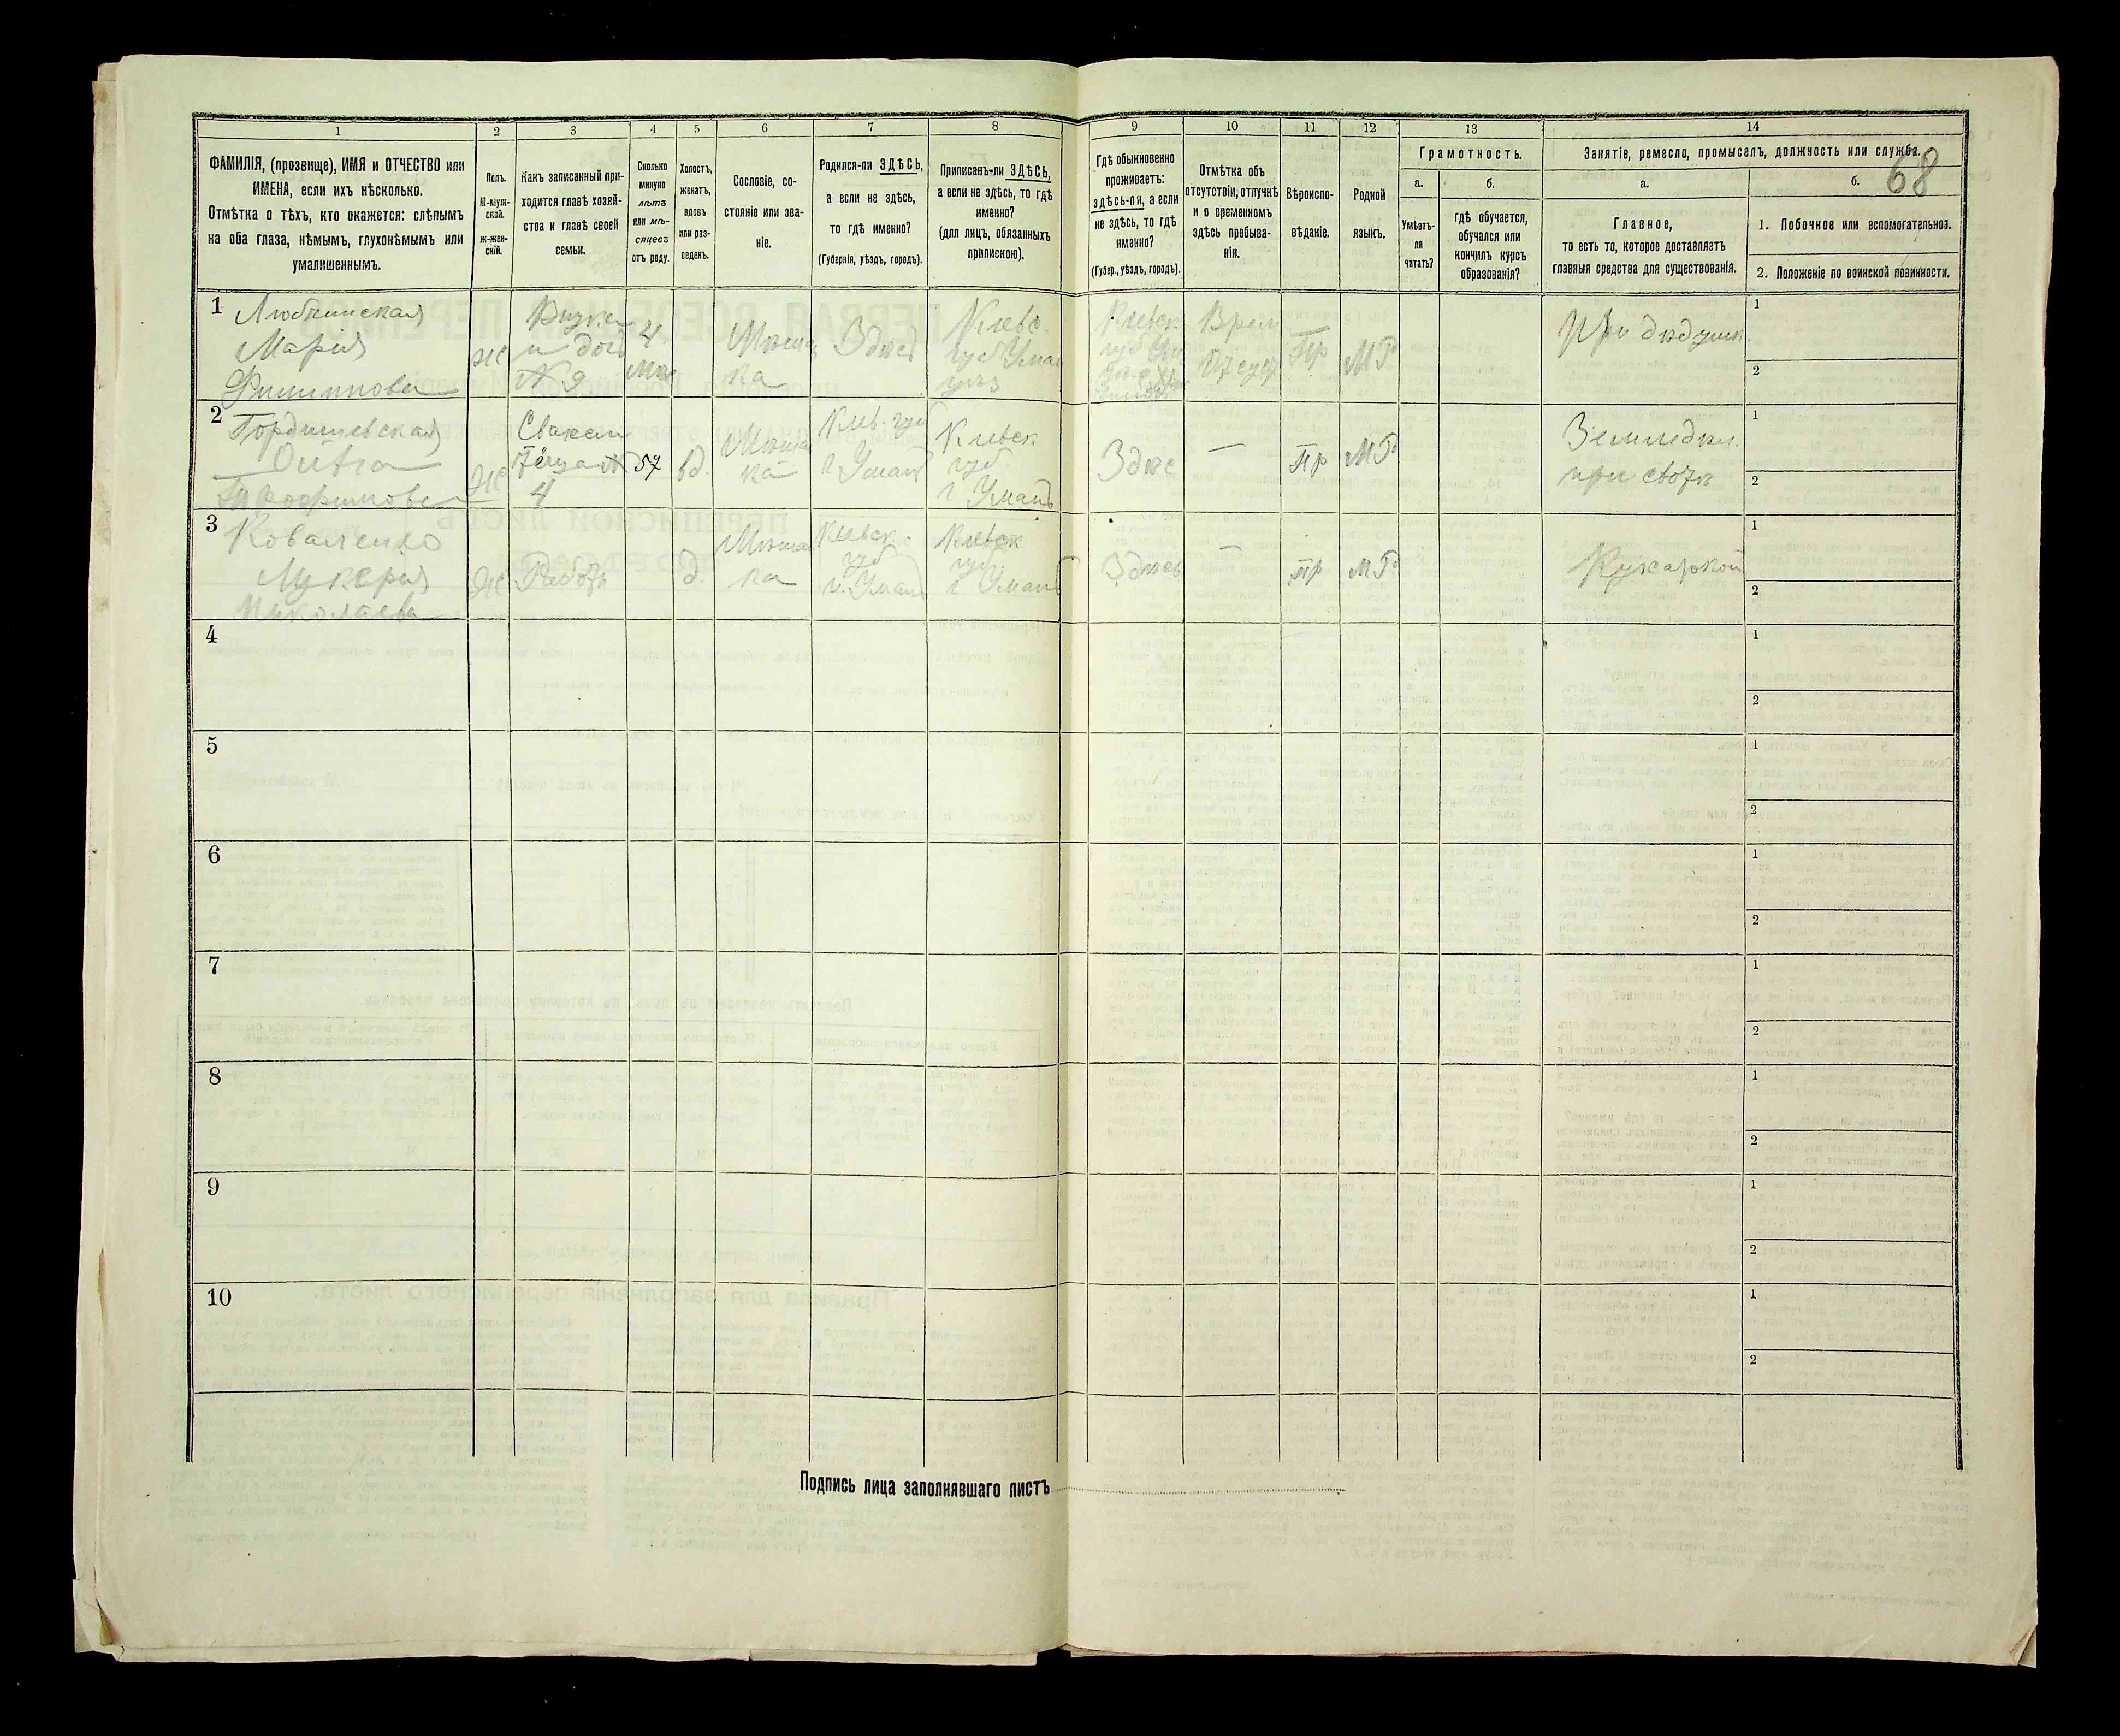 68
1 2 3 4 5 6 7 8 9 10 11 12 13 14
ФАМИЛІЯ, (прозвище), ИМЯ и ОТЧЕСТВО или
ИМЕНА, если ихъ нѣсколько.
Отмѣтка о тѣхъ, кто окажется: слѣпымъ
на оба глаза, нѣмымъ, глухонѣмымъ или
умалишеннымъ.
Полъ.
М-муж-
ской.
ж-жен-
скій.
Какъ записанный при-
ходится главѣ хозяй-
ства и главѣ своей
семьи.
Сколько
минуло
лѣтъ
или мѣ-
сяцевъ
отъ роду.
Холостъ,
женатъ,
вдовъ
или раз-
веденъ.
Сословіе, со-
стояніе или зва-
ніе.
Родился-ли ЗДѢСЬ,
а если не здѣсь,
то гдѣ именно?
(Губернія, уѣздъ, городъ).
Приписанъ-ли ЗДѢСЬ,
а если не здѣсь, то гдѣ
именно?
(для лицъ, обязанныхъ
припискою).
Гдѣ обыкновенно
проживаетъ:
здѣсь-ли, а если
не здѣсь, то гдѣ
именно?
(Губер., уѣздъ, городъ).
Отмѣтка объ
отсутствіи, отлучкѣ
и о временномъ
здѣсь пребыва-
ніи.
Вѣроиспо-
вѣданіе.
Родной
языкъ.
Грамотность.
а.
Умѣетъ-
ли
читать?
б.
гдѣ обучается,
обучался или
кончилъ курсъ
образованія?
Занятіе, ремесло, промыселъ, должность или служба.
а.
Главное,
то есть то, которое доставляетъ
главныя средства для существованія.
б.
1. Побочное или вспомогательное.
2. Положеніе по воинской повинности.
1
Марія
Филиппова
Ж
и дочь
№ 9
4
Мѣс
Мѣща
ка
Здѣсь
Кіевс.
губ Уман
Кіевск
Врем
Отсут
Пр
МР
При дѣдушк.
1
2
2
Гордишевская
Ж
4
57
вд.
Мѣща
ка
Кіев. губ
г Умань
Кіевск
губ
г Умань
Здѣс
—
пр
МР
Земледѣл.
при
1
2
3
Коваленко
Лукерія
Николаева
Ж
Работ
д.
Мѣща
ка
Кіевск
губ
г. Умань
Кіевск
губ
г Умань
Здѣсь
—
пр
МР
Кухаркой
1
2
4
1
2
5
1
2
6
1
2
7
1
2
8
1
2
9
1
2
10
1
2
Подпись лица заполнявшаго листъ